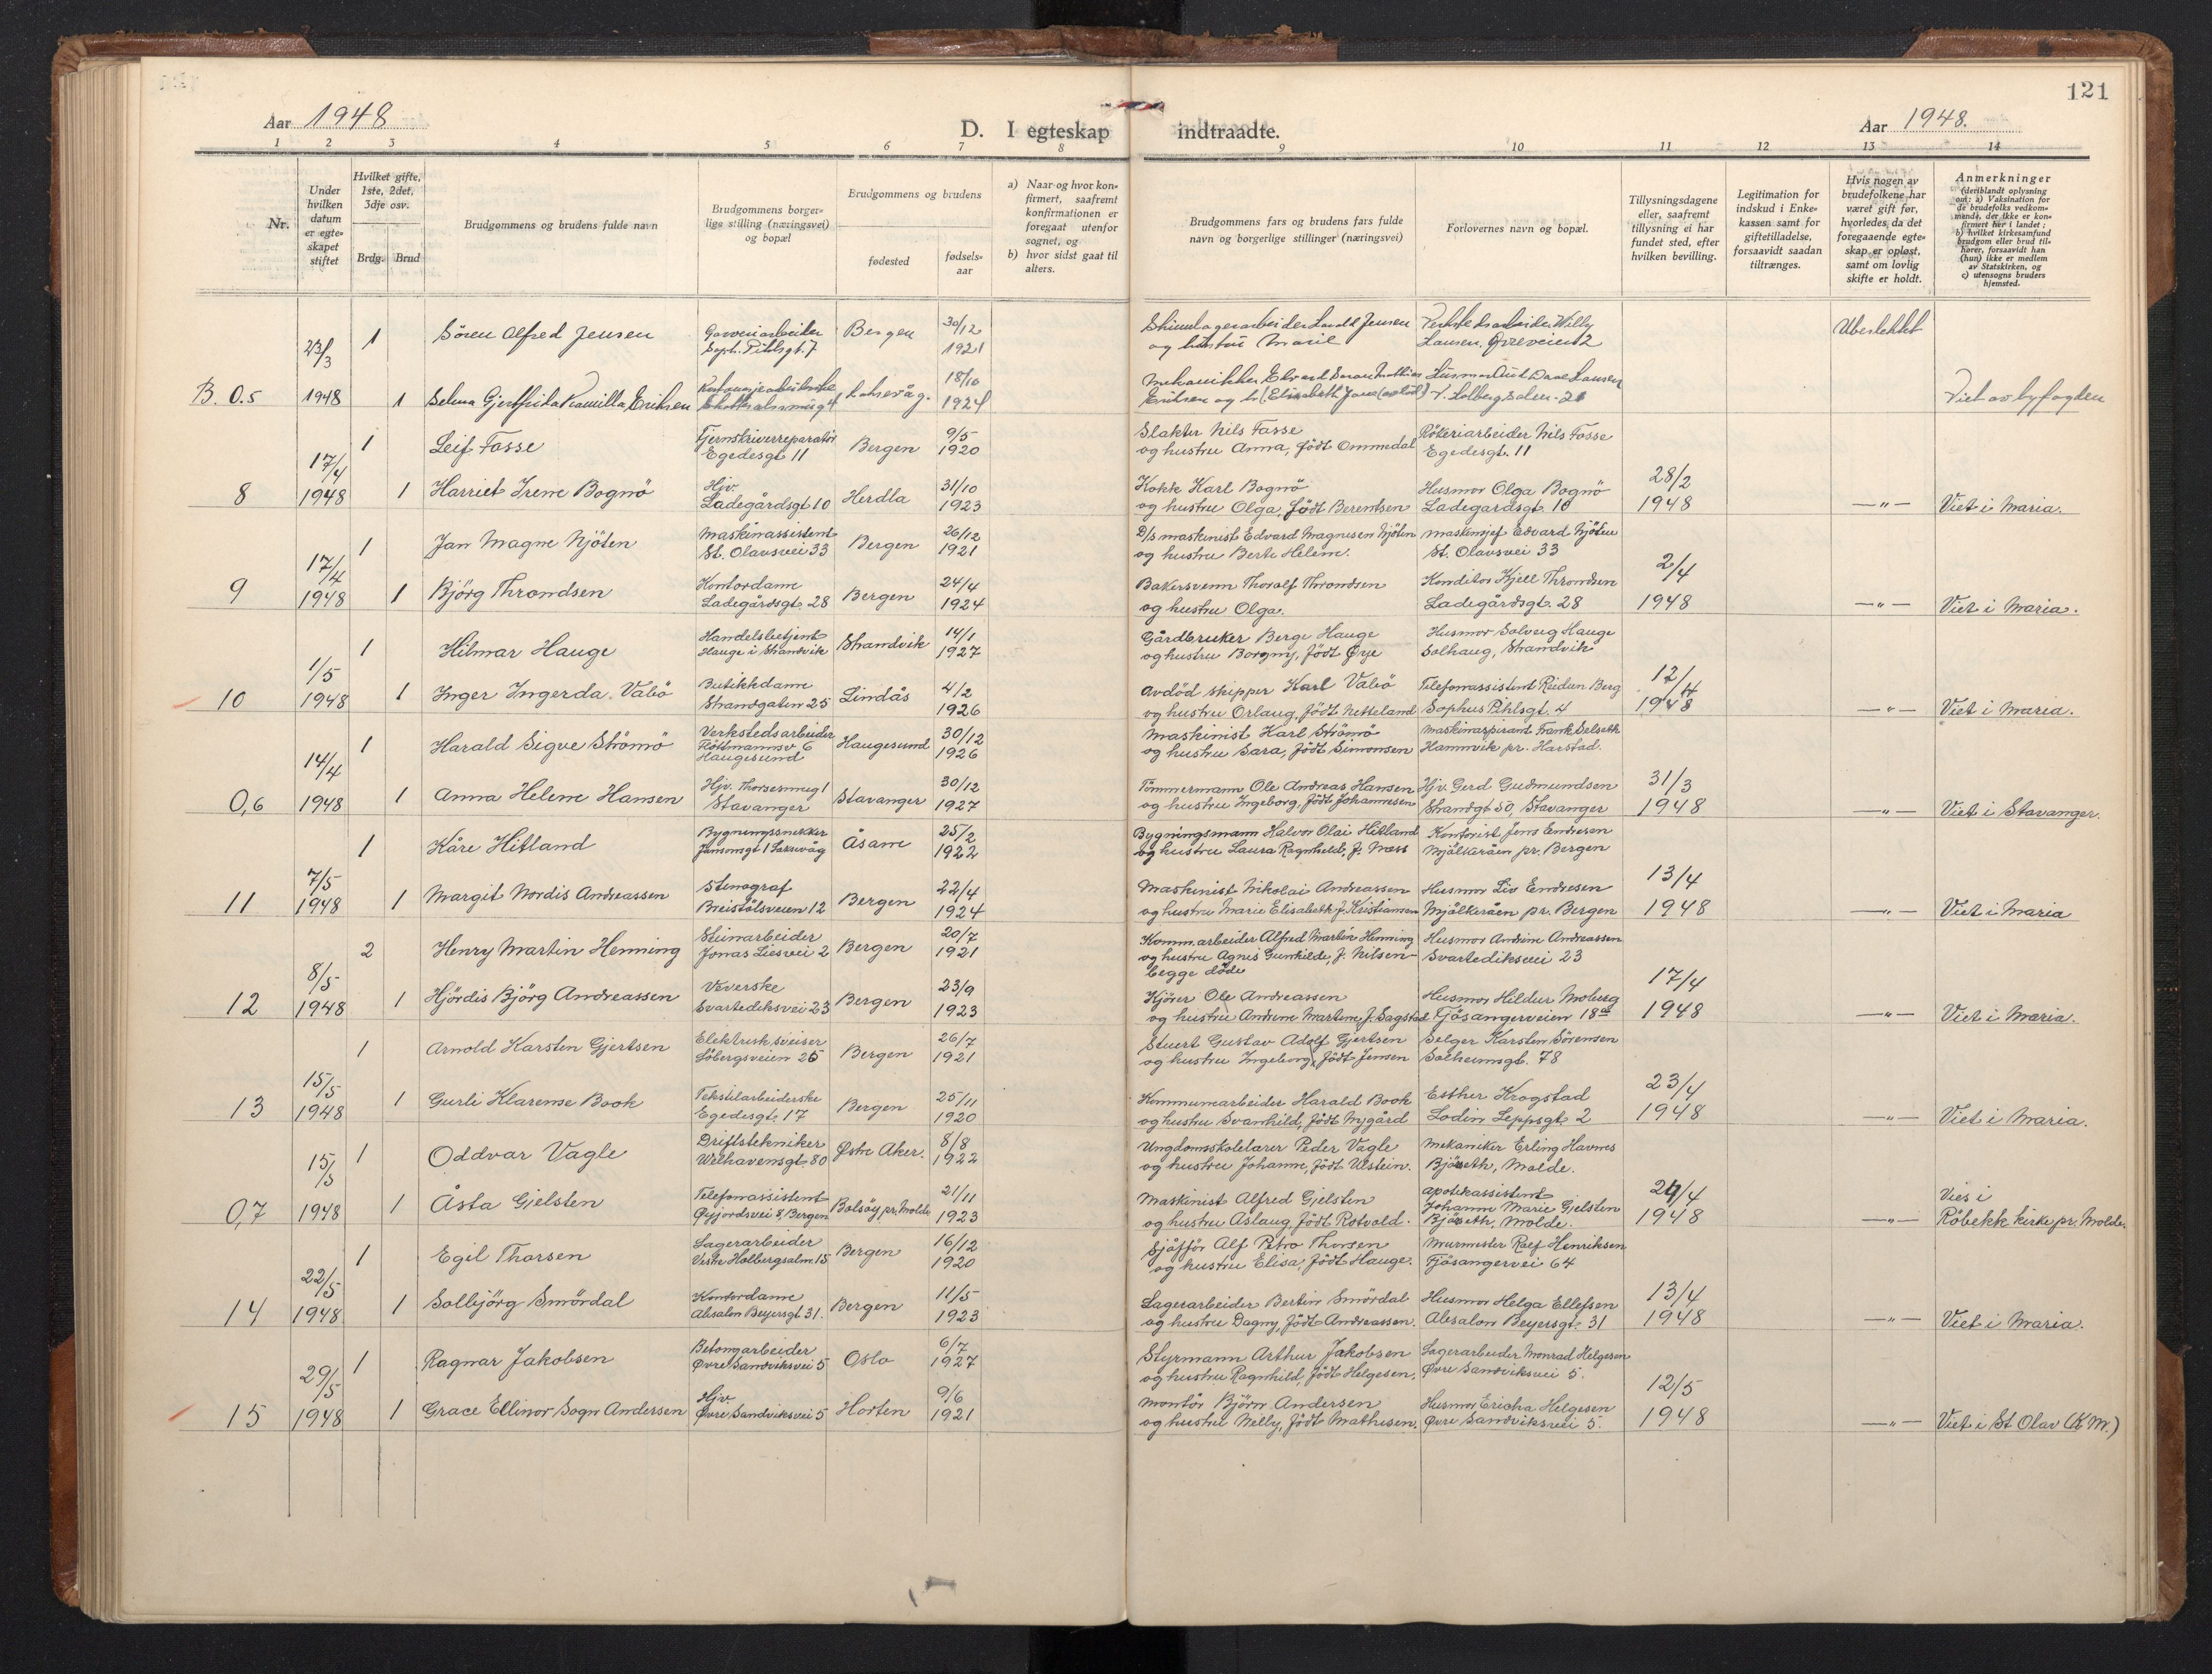 121
Aar 1948
D. I egteskap indtraadte.
Aar 1948.
1 2 3 4 5 6 7 8 9 10 11 12 13 14
Nr.
Under hvilken datum er egte-skapet stiftet
Hvilket gifte, 1ste, 2det, 3dje osv.
Brdg. Brud
Brudgommens og brudens fulde navn
Brudgommens borger-lige stilling (næringsvei) og bopæl
Brudgommens og brudens
fødested
fødsels-aar
a) Naar og hvor kon-firmert, saafremt konfirmationen er foregaat utenfor sognet, og
b) hvor sidst gaat til alters.
Brudgommens fars og brudens fars fulde navn og borgerlige stillinger (næringsvei)
Forlovernes navn og bopæl.
Tillysningsdagene eller, saafremt tillysning ei har fundet sted, efter hvilken bevilling.
Legitimation for indskud i Enke-kassen samt for giftetilladelse, forsaavidt saadan tiltrænges.
Hvis nogen av brudefolkene har været gift før, hvorledes da det foregaaende egte-skap er opløst, samt om lovlig skifte er holdt.
Anmerkninger
(deriblandt oplysning om: a) Vaksination for de brudefolks vedkom-mende, der ikke er kon-firmert her i landet; b) hvilket kirkesamfund brudgom eller brud til-hører, forsaavidt han (hun) ikke er medlem av Statskirken, og c) utensogns bruders hjemsted.
23/3 1 Sören Alfred Jensen Garveriarbeider Bergen 30/12 og hustru Marie Willy Ubeslektet
Soph. Pihlsgt. 7 1921 Larsen. Øvreveien 2
B. 0.5 1948 1 Selma Gjertfrida Kamilla Eriksen Laksevåg. 18/10 1924 Eriksen og h. Viet av byfogden
1 Leif Fosse Fjernskriverreparatör Bergen 9/5 Slakter Nils Fosse Rökeriarbeider Nils Fosse
Egedesgt 11 1920 og hustru Anna, födt Ommedal Egedesgt. 11
17/4 Hjv. 31/10 Kokk Karl Bognö Husmor Olga Bognö 28/2
8 1948 1 Harriet Irene Bognö Ladegårdsgt 10 Herdla 1923 og hustru Olga, födt Berentsen Ladegardsgt. 10 1948 —"— Viet i Maria.
1 Jan Magne Njöten Maskinassistent Bergen 26/12 D/s maskinist Edvard Magnusen Njöten Maskinsjef Edvard Njöten
St. Olavsvei 33 1921 og hustru Berte Helene. St. Olavsvei 33
17/4 Kontordame 24/4 Bakersvenn Thoralf Throndsen Konditor Kjell Throndsen 2/4
9 1948 1 Björg Throndsen Ladegårdsgt. 28 Bergen 1924 og hustru Olga. Ladegårdsgt. 28 1948 —"— Viet i Maria.
1 Hilmar Hauge Handelsbetjent Strandvik 14/1 Gårdbruker Berge Hauge Husmor Solveig Hauge
Hauge i Strandvik 1927 og hustru Borgny, födt Øye Solhaug, Strandvik
1/5 Butikkdame 4/2 Avdöd skipper Karl Valö Telefonassistent Reidun Berg 12/4
10 1948 1 Inger Ingerda Valö Strandgaten 25 Lindås 1926 og hustru Orlaug, födt Netteland Sophus Pihlsgt. 4 1948 —"— Viet i Maria.
1 Harald Sigve Strömö Verkstedsarbeider Haugesund 30/12 Maskinist Karl Strömö Maskinaspirant Frank Selseth
Röttmannsv 6 Haugesund 1926 og hustru Sara, födt Simonsen Hamnvik pr. Harstad.
14/4 Hjv. Thorsesmug 1 30/12 Tömmermann Ole Andreas Hansen Hjv. Gerd Gudmundsen 31/3
0,6 1948 1 Anna Helene Hansen Stavanger Stavanger 1927 og hustru Ingeborg, födt Johannesen Strandgt 50, Stavanger 1948 —"— Viet i Stavanger.
1 Kåre Hitland Bygningssnekker Åsane 25/2 Bygningsmann Halvor Olai Hitland Kontorist Jens Endresen
Jansonsgt 1 Laksevåg 1922 og hustru Laura Ragnhild, f. Næss Mjölkeråen pr. Bergen
7/5 Stenograf 22/4 Maskinist Nikolai Andreassen Husmor Liv Endresen 13/4
11 1948 1 Margit Nordis Andreassen Breistölsveien 12 Bergen 1924 og hustru Marie Elisabeth f. Kristiansen Mjölkeråen pr. Bergen 1948 —"— Viet i Maria
2 Henry Martin Henning Steinarbeider Bergen 20/7 Komm.arbeider Alfred Martin Henning Husmor Andrine Andreassen
Jonas Liesvei 2 1921 og hustru Agnes Gunhilde, f. Nilsen Svartediksvei 23
begge döde
8/5 Veverske 23/9 Kjörer Ole Andreassen Husmor Hildur Moberg 17/4
12 1948 1 Hjördis Björg Andreassen Svartediksvei 23 Bergen 1923 og hustru Andrine Martine, f. Sagstad Fjösangerveien 18a 1948 —"— Viet i Maria.
1 Arnold Karsten Gjertsen Elektrisk sveiser Bergen 26/7 Stuert Gustav Adolf Gjertsen Selger Karsten Sörensen
Söbergsveien 25 1921 og hustru Ingeborg, födt Jensen Solheimsgt. 78
15/5 Tekstilarbeiderske 25/11 Kommunearbeider Harald Book Esther Krogstad 23/4
13 1948 1 Gurli Klarense Book Egedesgt. 17 Bergen 1920 og hustru Svanhild, födt Nygård Lodin Leppsgt 2 1948 —"— Viet i Maria.
1 Oddvar Vagle Driftstekniker Østre Aker. 8/8 Ungdomsskolelærer Peder Vagle Mekaniker Erling Havnes
Welhavensgt 80 1922 og hustru Johanne, födt Ulstein. Bjöseth, Molde.
15/5 Telefonassistent 21/11 Maskinist Alfred Gjelsten Apotekassistent Johanne Marie Gjelsten 24/4 Vies i
0,7 1948 1 Åsta Gjelsten Øyjordsvei 8, Bergen Bolsöy pr. Molde 1923 og hustru Aslaug, födt Rotvold. Bjöseth, Molde. 1948 —"— Röbekk kirke pr. Molde.
1 Egil Thorsen Lagerarbeider Bergen 16/12 Sjåfför Alf Petro Thorsen Murmester Ralf Henriksen
Vestre Holbergsalm. 15 1920 og hustru Elisa, födt Hauge. Fjösangervei 64
22/5 Kontordame 11/5 Lagerarbeider Bertin Smördal Husmor Helga Ellefsen 13/4
14 1948 1 Solbjörg Smördal Absalon Beyersgt 31. Bergen 1923 og hustru Dagny, födt Andreassen. Absalon Beyersgt. 31 1948 —"— Viet i Maria.
1 Ragnar Jakobsen Betongarbeider Oslo 6/7 Styrmann Arthur Jakobsen Lagerarbeider Monrad Helgesen
Øvre Sandviksvei 5 1927 og hustru Ragnhild, födt Helgesen. Øvre Sandviksvei 5.
29/5 Hjv. 9/6 Montör Björn Andersen Husmor Ericha Helgesen 12/5
15 1948 1 Grace Ellinor Sogn Andersen Øvre Sandviksvei 5 Horten 1921 og hustru Nelly, födt Mathisen. Øvre Sandviksvei 5. 1948 —"— Viet i St Olav (K M.)